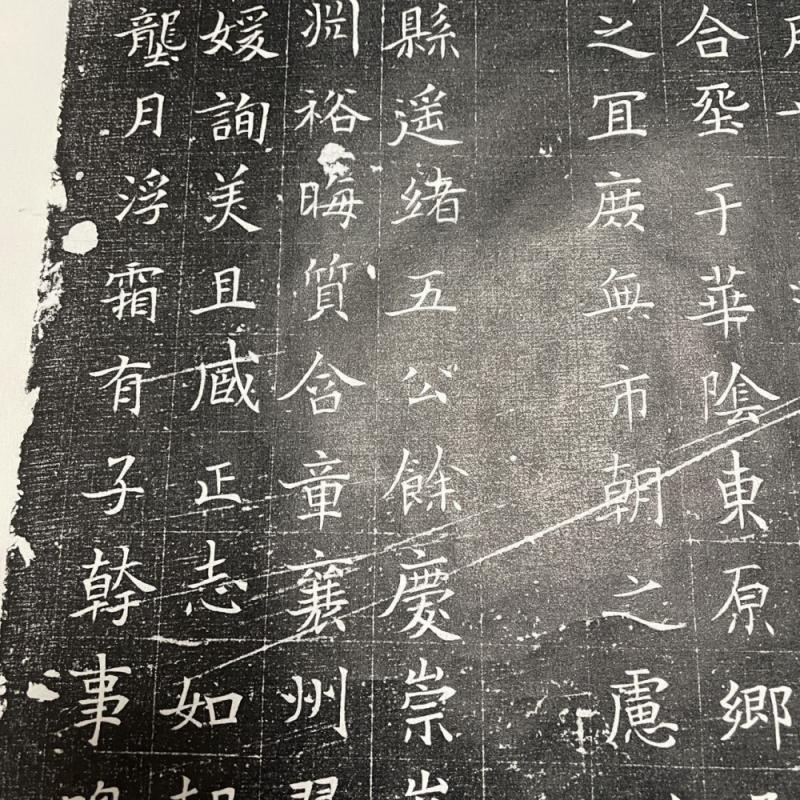 合于華陰東原鄉
之冝庻無市朝之慮
縣遥緒五公餘慶崇
渕裕晦質含章襄州
媛詢美且臧正志如
壟月浮霜有子幹事